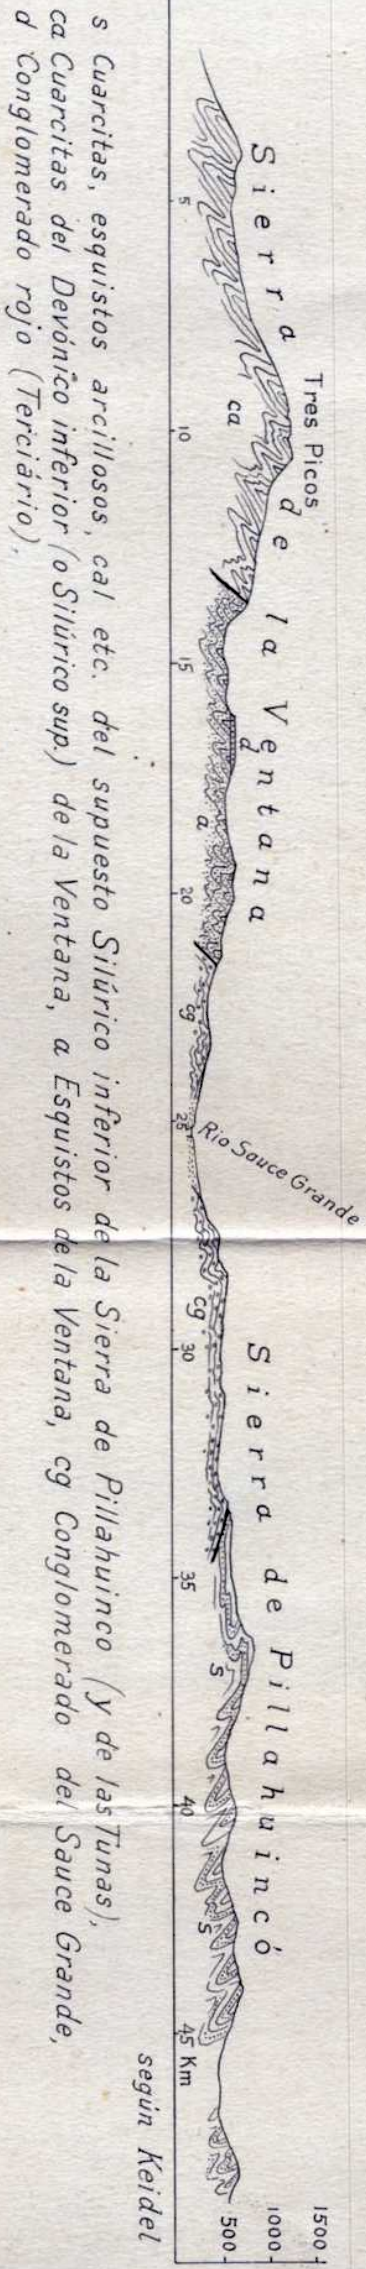 Sierra de la Ventana
Tres Picos
Sierra de Pillahuincó
Rio Sauce Grande
1500
1000
500
ca
d
a
cg
cg
s
s
5
10
15
20
25
30
35
40
45 Km
según Keidel
s Cuarcitas, esquistos arcillosos, cal etc. del supuesto Silúrico inferior de la Sierra de Pillahuinco (y de las Tunas),
ca Cuarcitas del Devónico inferior (o Silúrico sup.) de la Ventana, a Esquistos de la Ventana, cg Conglomerado del Sauce Grande,
d Conglomerado rojo (Terciário).